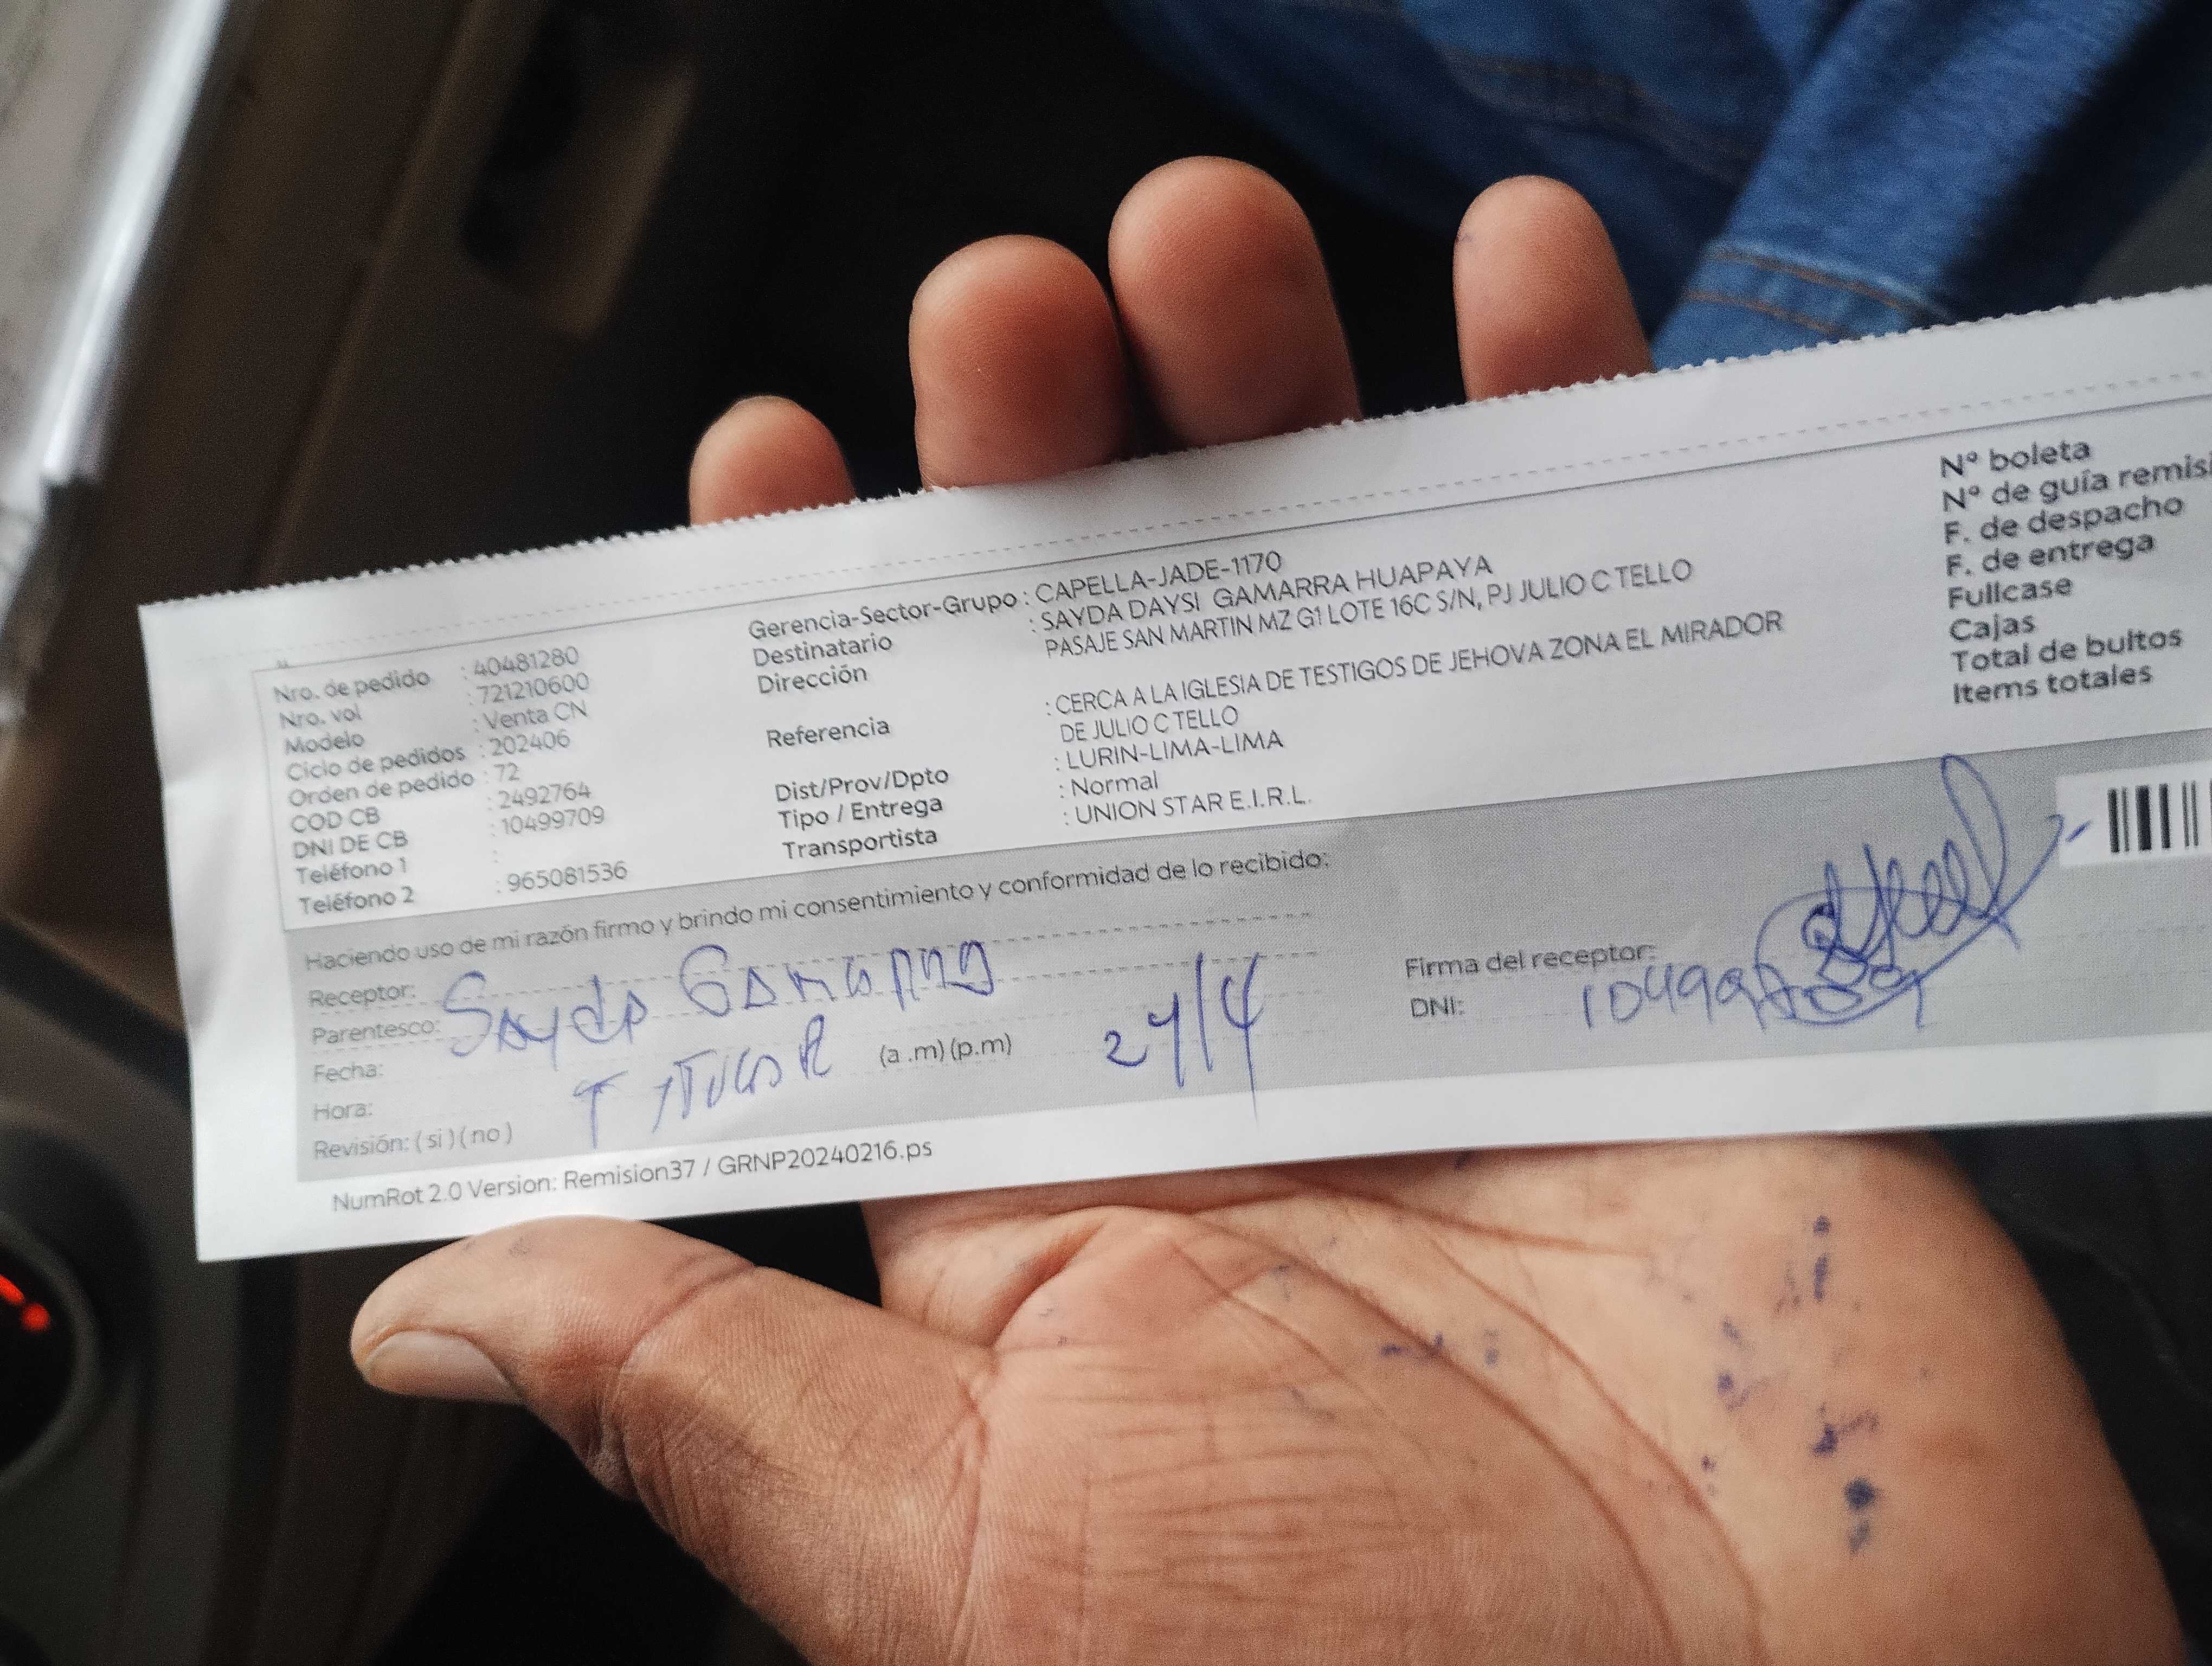 Nro. de pedido : 40481280
Nro. vol : 721210600
Modelo : Venta CN
Ciclo de pedidos : 202406
Orden de pedido : 72
COD CB : 2492764
DNI DE CB : 10499709
Teléfono 1 :
Teléfono 2 : 965081536
Gerencia-Sector-Grupo : CAPELLA-JADE-1170
Destinatario : SAYDA DAYSI GAMARRA HUAPAYA
Dirección PASAJE SAN MARTIN MZ G1 LOTE 16C S/N, PJ JULIO C TELLO
Referencia : CERCA A LA IGLESIA DE TESTIGOS DE JEHOVA ZONA EL MIRADOR
DE JULIO C TELLO
Dist/Prov/Dpto : LURIN-LIMA-LIMA
Tipo / Entrega : Normal
Transportista : UNION STAR E.I.R.L.
Nº boleta
Nº de guía remisi
F. de despacho
F. de entrega
Fullcase
Cajas
Total de bultos
Items totales
Haciendo uso de mi razón firmo y brindo mi consentimiento y conformidad de lo recibido:
Receptor: Sayda Gamarra
Parentesco:
Fecha:
Hora: (a .m) (p.m) 24/4
Revisión: ( si ) ( no )
Firma del receptor:
DNI: 10499709
NumRot 2.0 Version: Remision37 / GRNP20240216.ps